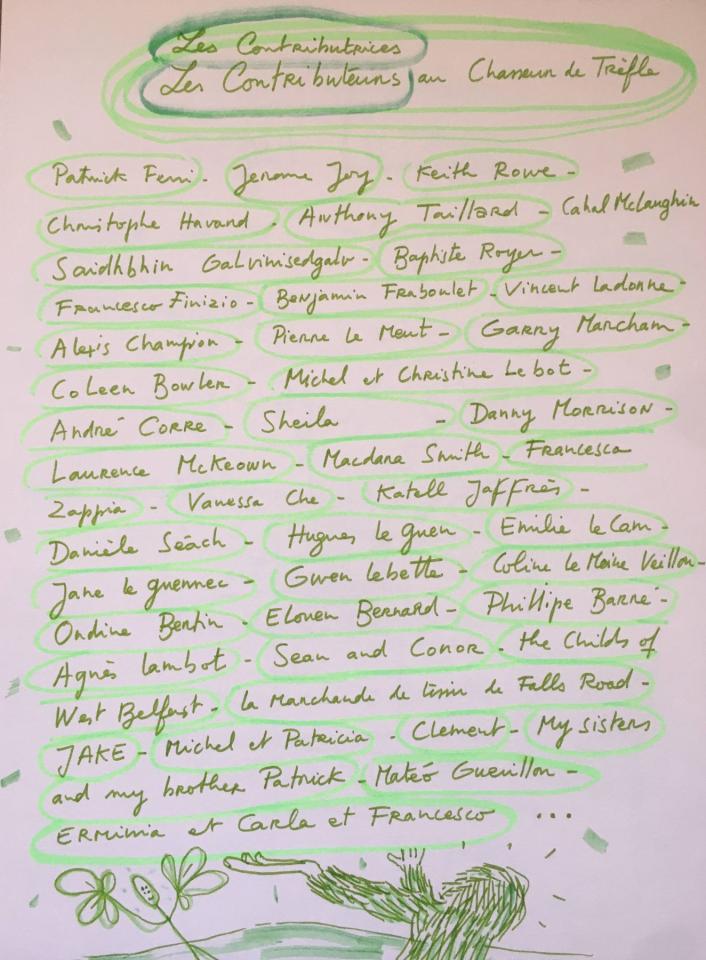 Les Contributrices
Les Contributeurs au Chasseur de Trèfle
Patrick Ferri - Jerome Joy - Keith Rowe -
Christophe Havard - Anthony Taillard - Cahal McLaughin
Saidhbhin Galvinisedgalv - Baptiste Royer -
Francesco Finizio - Benjamin Fraboulet - Vincent Ladonne -
Alexis Champion - Pierre Le Meut - Garry Marcham -
CoLeen Bowler - Michel et Christine Le bot -
André CORRE - Sheila - Danny MORRISON -
Laurence McKeown - Macdara Smith - Francesca
Zappia - Vanessa Che - Katell Jaffrès -
Danièle Séach - Hugues le guen - Emilie le Cam -
Jane le guennec - Gwen Lebette - Coline Le Moine Veillon -
Ondine Bertin - Elouen Bernard - Phillipe Barré -
Agnès Lambot - Sean and Conor - the Childs of
West Belfast - la Marchande de tissu de Falls Road -
JAKE - Michel et Patricia - Clement - My sisters
and my brother Patrick - Matéo Guerillon -
ERMINIA et Carla et Francesco ...